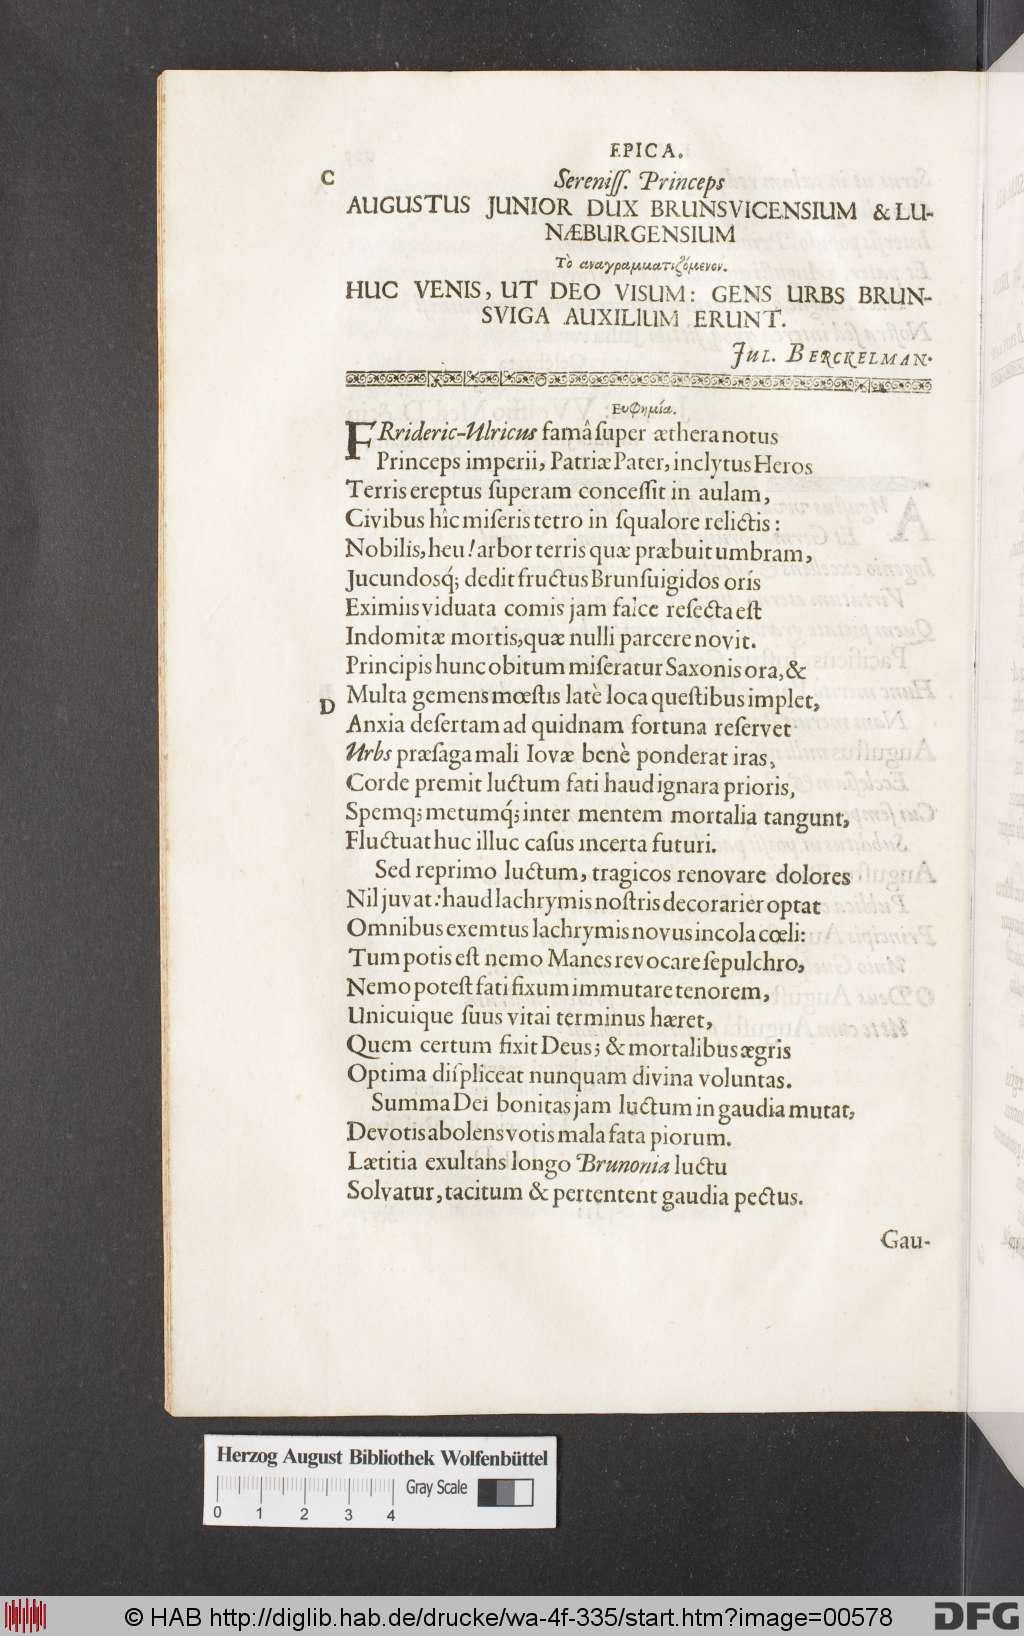 EPICA.
C
Sereniſſ. Princeps
AUGUSTUS JUNIOR DUX BRUNSVICENSIUM & LU-
NÆBURGENSIUM
Τὸ αναγραμματιζόμενον.
HUC VENIS, UT DEO VISUM: GENS URBS BRUN-
SVIGA AUXILIUM ERUNT.
JUL. BERCKELMAN.
Ευφημία.
FRrideric-Ulricus famâ ſuper æthera notus
Princeps imperii, Patriæ Pater, inclytus Heros
Terris ereptus ſuperam conceſſit in aulam,
Civibus hîc miſeris tetro in ſqualore relictis:
Nobilis, heu! arbor terris quæ præbuit umbram,
Jucundosq́; dedit fructus Brunſuigidos oris
Eximiis viduata comis jam falce reſecta eſt
Indomitæ mortis, quæ nulli parcere novit.
Principis hunc obitum miſeratur Saxonis ora, &
D
Multa gemens mœſtis latè loca queſtibus implet,
Anxia deſertam ad quidnam fortuna reſervet
Urbs præſaga mali Iovæ benè ponderat iras,
Corde premit luctum fati haud ignara prioris,
Spemq; metumq́; inter mentem mortalia tangunt,
Fluctuat huc illuc caſus incerta futuri.
Sed reprimo luctum, tragicos renovare dolores
Nil juvat: haud lachrymis noſtris decorarier optat
Omnibus exemtus lachrymis novus incola cœli:
Tum potis eſt nemo Manes revocare ſepulchro,
Nemo poteſt fati fixum immutare tenorem,
Unicuique ſuus vitai terminus hæret,
Quem certum fixit Deus; & mortalibus ægris
Optima diſpliceat nunquam divina voluntas.
Summa Dei bonitas jam luctum in gaudia mutat,
Devotis abolens votis mala fata piorum.
Lætitia exultans longo Brunonia luctu
Solvatur, tacitum & pertentent gaudia pectus.
Gau-
Herzog August Bibliothek Wolfenbüttel
Gray Scale
0 1 2 3 4
© HAB http://diglib.hab.de/drucke/wa-4f-335/start.htm?image=00578
DFG